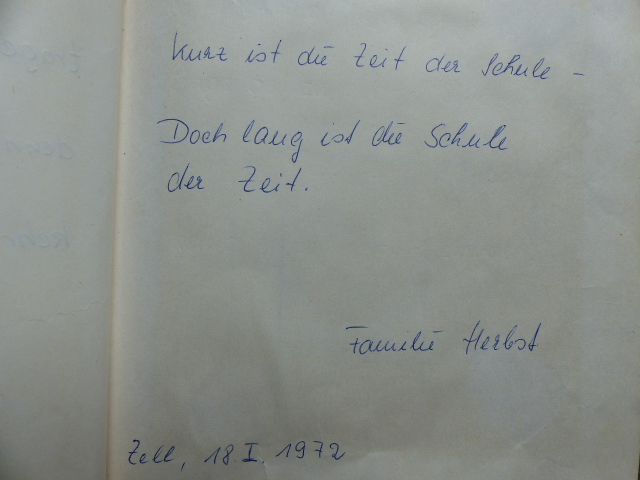 Kurz ist die Zeit der Schule –
Doch lang ist die Schule
der Zeit.
Familie Herbst
Zell, 18. I. 1972